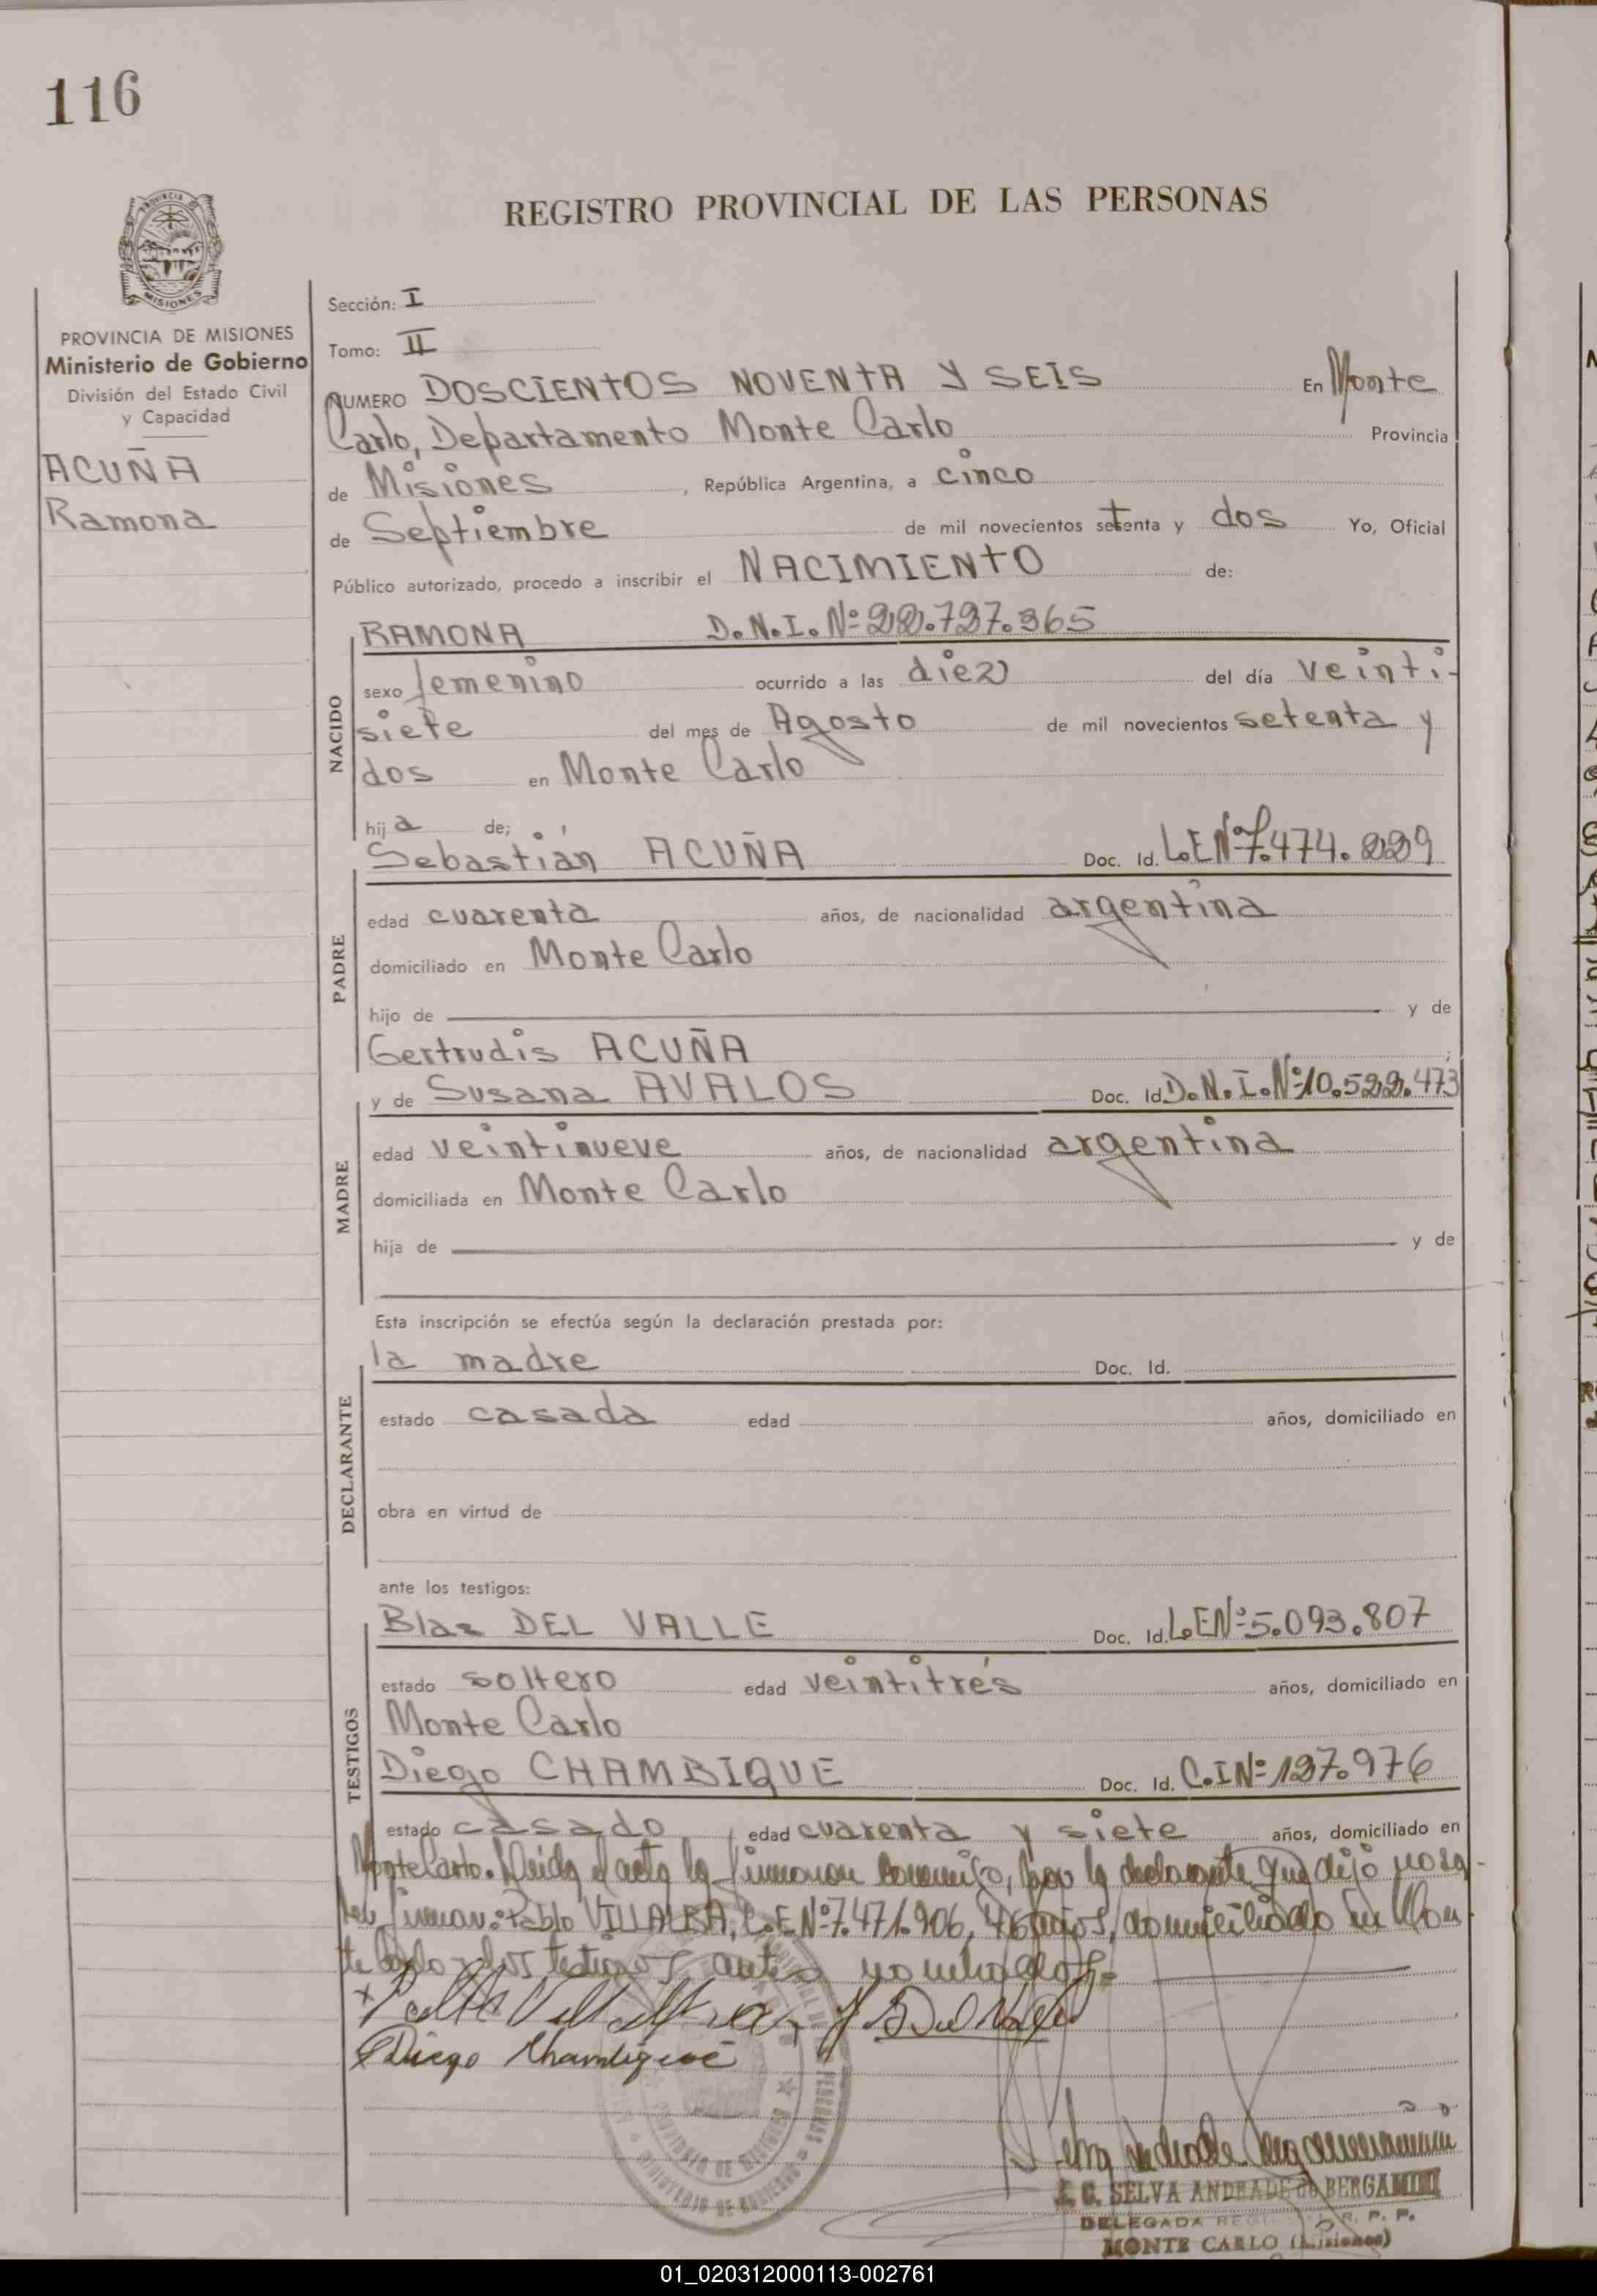 116
REGISTRO PROVINCIAL DE LAS PERSONAS
PROVINCIA DE MISIONES
Ministerio de Gobierno
División del Estado Civil
y Capacidad
ACUÑA
Ramona
Sección: I
Tomo: II
NUMERO DOSCIENTOS NOVENTA Y SEIS En Monte
Carlo, Departamento Monte Carlo Provincia
de Misiones, República Argentina, a cinco
de Septiembre de mil novecientos setenta y dos Yo, Oficial
Público autorizado, procedo a inscribir el NACIMIENTO de:
RAMONA D.N.I.Nº 22.727.365
NACIDO
sexo femenino ocurrido a las diez del día veinti-
siete del mes de Agosto de mil novecientos setenta y
dos en Monte Carlo
hija de;
Sebastián ACUÑA Doc. Id. L.E.Nº 7.474.229
PADRE
edad cuarenta años, de nacionalidad argentina
domiciliado en Monte Carlo
hijo de y de
Gertrudis ACUÑA ;
y de Susana AVALOS Doc. Id. D.N.I.Nº 10.522.473
MADRE
edad veintinueve años, de nacionalidad argentina
domiciliada en Monte Carlo
hija de y de
Esta inscripción se efectúa según la declaración prestada por:
la madre Doc. Id.
DECLARANTE
estado casada edad años, domiciliado en
obra en virtud de
ante los testigos:
Blas DEL VALLE Doc. Id. L.E.Nº 5.093.807
TESTIGOS
estado soltero edad veintitrés años, domiciliado en
Monte Carlo
Diego CHAMBIQUE Doc. Id. C.I.Nº 127.976
estado casado edad cuarenta y siete años, domiciliado en
Monte Carlo. Leída el acta la firmaron conmigo, por la declarante que dijo no sa-
ber firmar: Pablo VILLALBA, L.E.Nº 7.471.906, 46 años, domiciliado en Mon-
te Carlo y los testigos antes nombrados.-
Diego Chambique
PROVINCIA DE MISIONES
MINISTERIO DE GOBIERNO
SELVA ANDRADE de BERGAMINI
DELEGADA R. P. P.
MONTE CARLO (Misiones)
01_020312000113-002761